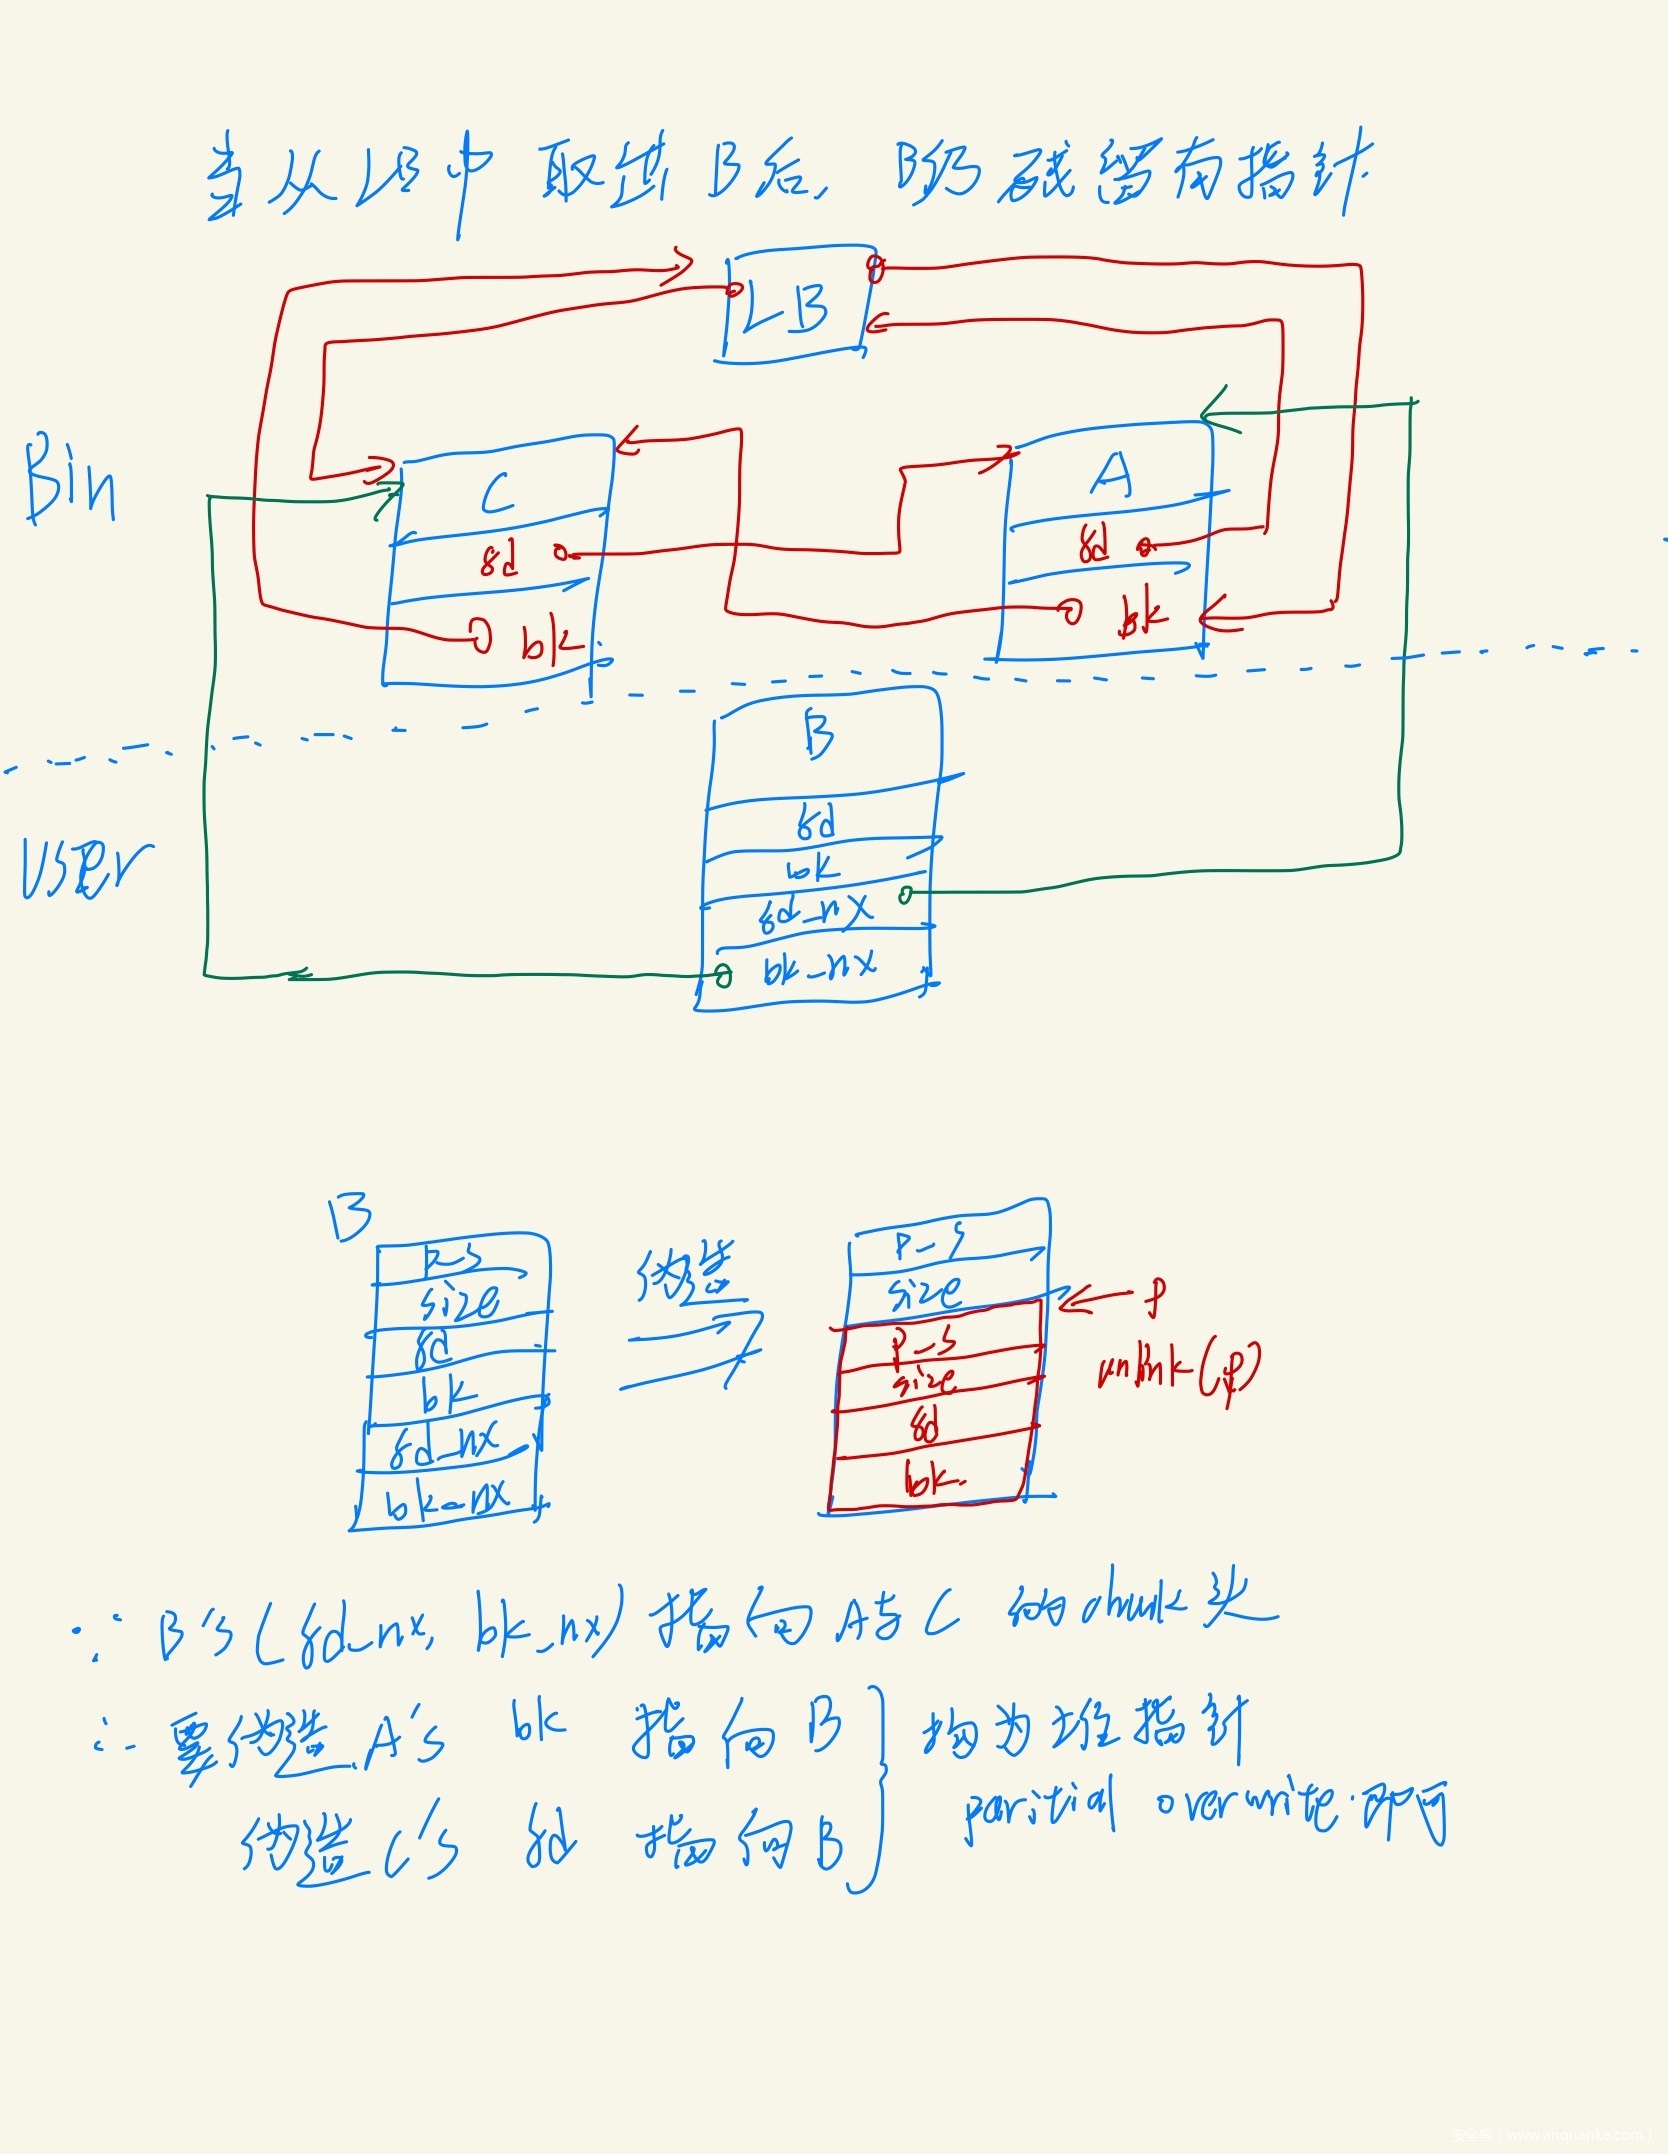 当从LB中取出B后, B仍残留有指针.
LB
Bin
C
A
fd
fd
bk
bk
B
fd
bk
User
fd_nx
bk_nx
B
P_S
size
fd
bk
fd_nx
bk_nx
伪造
P_S
size
P_S
size
fd
bk.
P
unlink(p)
∵ B's(fd_nx, bk_nx)指向A与C的chunk头
∴ 要伪造A's bk 指向B
伪造C's fd 指向B
均为堆指针
paritial overwrite.即可
安全客（www.anquanke.com）